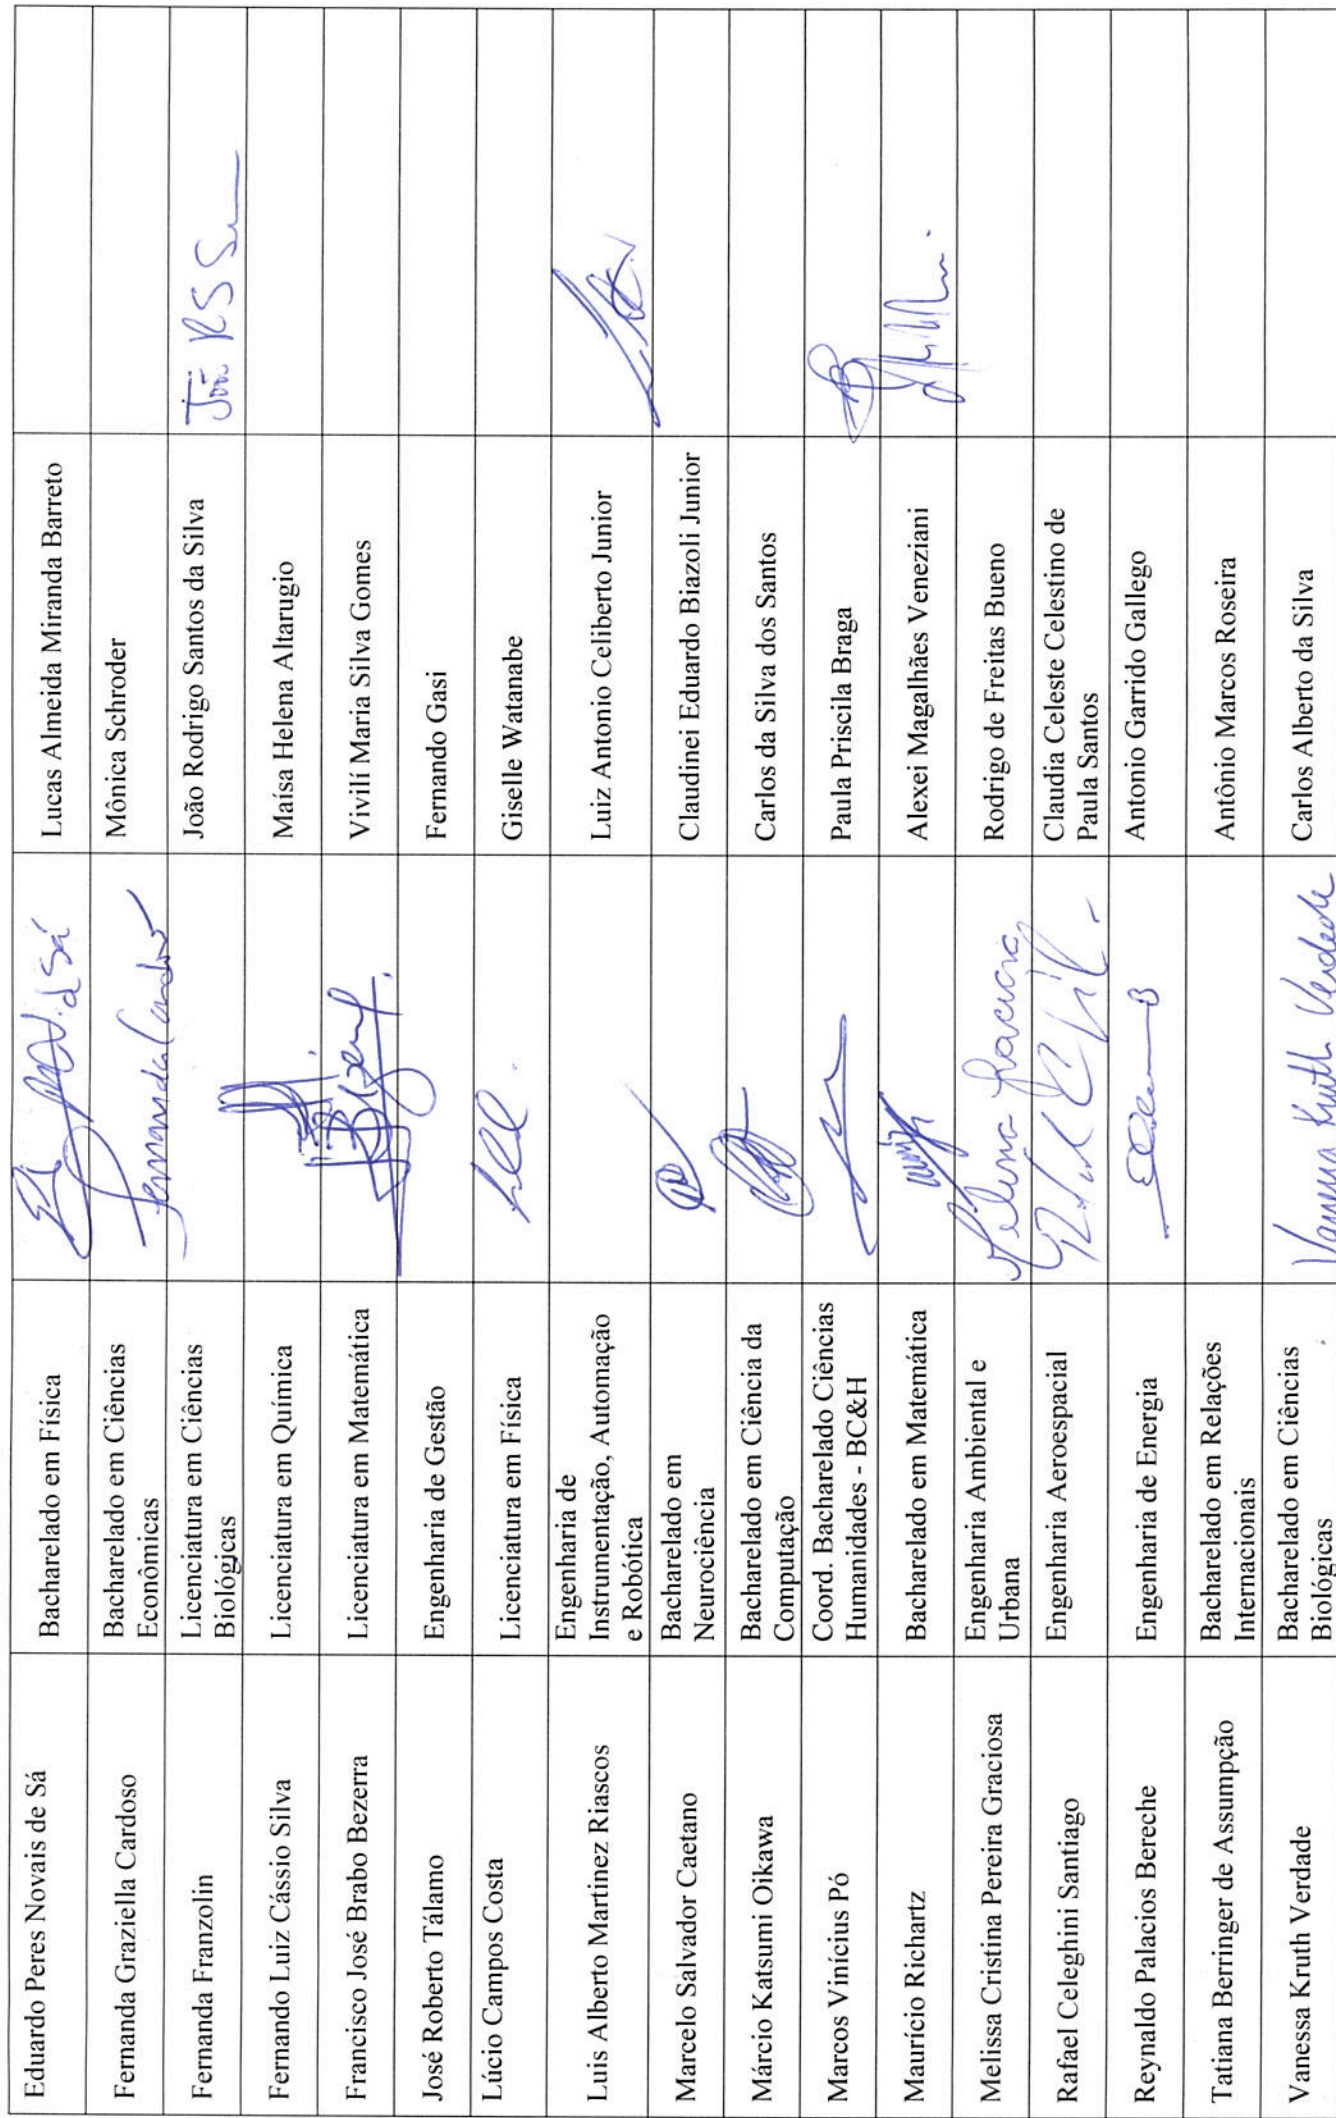 Eduardo Peres Novais de Sá
Bacharelado em Física
Lucas Almeida Miranda Barreto
Fernanda Graziella Cardoso
Bacharelado em Ciências
Econômicas
Fernanda Cardoso
Mônica Schroder
Fernanda Franzolin
Licenciatura em Ciências
Biológicas
João Rodrigo Santos da Silva
João RSS
Fernando Luiz Cássio Silva
Licenciatura em Química
Maísa Helena Altarugio
Francisco José Brabo Bezerra
Licenciatura em Matemática
Vivilí Maria Silva Gomes
José Roberto Tálamo
Engenharia de Gestão
Fernando Gasi
Lúcio Campos Costa
Licenciatura em Física
Giselle Watanabe
Luis Alberto Martinez Riascos
Engenharia de
Instrumentação, Automação
e Robótica
Luiz Antonio Celiberto Junior
Marcelo Salvador Caetano
Bacharelado em
Neurociência
Claudinei Eduardo Biazoli Junior
Márcio Katsumi Oikawa
Bacharelado em Ciência da
Computação
Carlos da Silva dos Santos
Marcos Vinícius Pó
Coord. Bacharelado Ciências
Humanidades - BC&H
Paula Priscila Braga
Maurício Richartz
Bacharelado em Matemática
Alexei Magalhães Veneziani
Melissa Cristina Pereira Graciosa
Engenharia Ambiental e
Urbana
Rodrigo de Freitas Bueno
Rafael Celeghini Santiago
Engenharia Aeroespacial
Claudia Celeste Celestino de
Paula Santos
Reynaldo Palacios Bereche
Engenharia de Energia
Antonio Garrido Gallego
Tatiana Berringer de Assumpção
Bacharelado em Relações
Internacionais
Antônio Marcos Roseira
Vanessa Kruth Verdade
Bacharelado em Ciências
Biológicas
Vanessa Kruth Verdade
Carlos Alberto da Silva